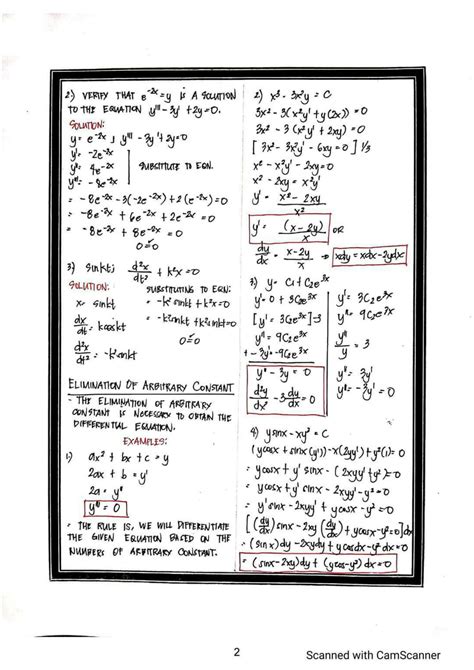 2) VERIFY THAT e^-2x = y IS A SOLUTION
TO THE EQUATION y''' - 3y' + 2y = 0.
SOLUTION:
y = e^-2x ; y''' - 3y' + 2y = 0
y' = -2e^-2x
y'' = 4e^-2x
y''' = -8e^-2x
SUBSTITUTE TO EQN.
= -8e^-2x - 3(-2e^-2x) + 2(e^-2x) = 0
= -8e^-2x + 6e^-2x + 2e^-2x = 0
= -8e^-2x + 8e^-2x = 0
0 = 0
3) sin kt; d²x/dt² + k²x = 0
SOLUTION:
x = sin kt
dx/dt = k cos kt
d²x/dt² = -k² sin kt
SUBSTITUTING TO EQN:
= -k² sin kt + k²x = 0
= -k² sin kt + k² sin kt = 0
0 = 0
ELIMINATION OF ARBITRARY CONSTANT
- THE ELIMINATION OF ARBITRARY
CONSTANT IS NECESSARY TO OBTAIN THE
DIFFERENTIAL EQUATION.
EXAMPLES:
1) ax² + bx + c = y
2ax + b = y'
2a = y''
y''' = 0
= THE RULE IS, WE WILL DIFFERENTIATE
THE GIVEN EQUATION BASED ON THE
NUMBERS OF ARBITRARY CONSTANT.
2) x³ - 3x²y = C
3x² - 3(x²y' + y(2x)) = 0
3x² - 3(x²y' + 2xy) = 0
[3x² - 3x²y' - 6xy = 0] 1/3
x² - x²y' - 2xy = 0
x² - 2xy = x²y'
y' = x² - 2xy / x²
y' = (x - 2y) / x OR
dy/dx = x - 2y / x ⇒ xdy = xdx - 2ydx
3) y = C1 + C2e^3x
y' = 0 + 3C2e^3x
[y' = 3C2e^3x] -3
y'' = 9C2e^3x
+ -3y' = -9C2e^3x
y'' - 3y = 0
d²y/dx² - 3 dy/dx = 0
y' = 3C2e^3x
y'' = 9C2e^3x
y''/y' = 3
y'' = 3y'
4) ysinx - xy² = C
(ycosx + sinx(y')) - x(2yy') + y²(1) = 0
= ycosx + y'sinx - (2xyy' + y²) = 0
= ycosx + y'sinx - 2xyy' - y² = 0
= y'sinx - 2xyy' + ycosx - y² = 0
[(dy/dx) sinx - 2xy (dy/dx) + ycosx - y² = 0] dx
= (sinx)dy - 2xydy + ycosdx - y²dx = 0
= (sinx - 2xy)dy + (ycos - y²)dx = 0
2
Scanned with CamScanner